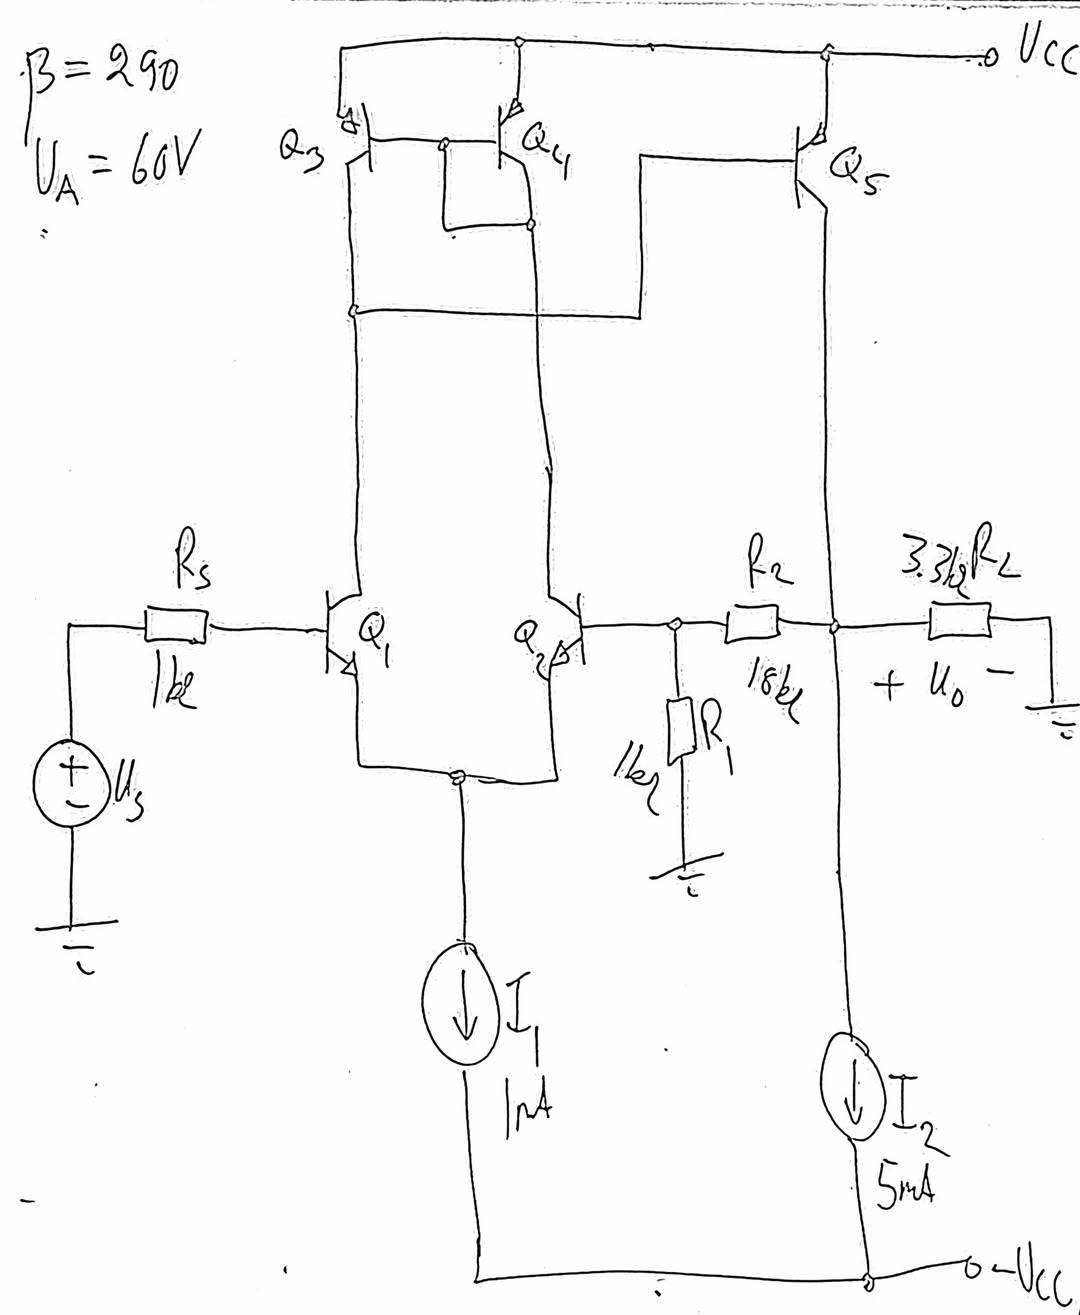 β = 290
U_A = 60V
UCC
Q3
Q4
Q5
Rs
1kΩ
Q1
Q2
R2
18kΩ
3.3kΩ RL
+ U0 -
R1
1kΩ
+
-
Us
I1
1mA
I2
5mA
-UCC